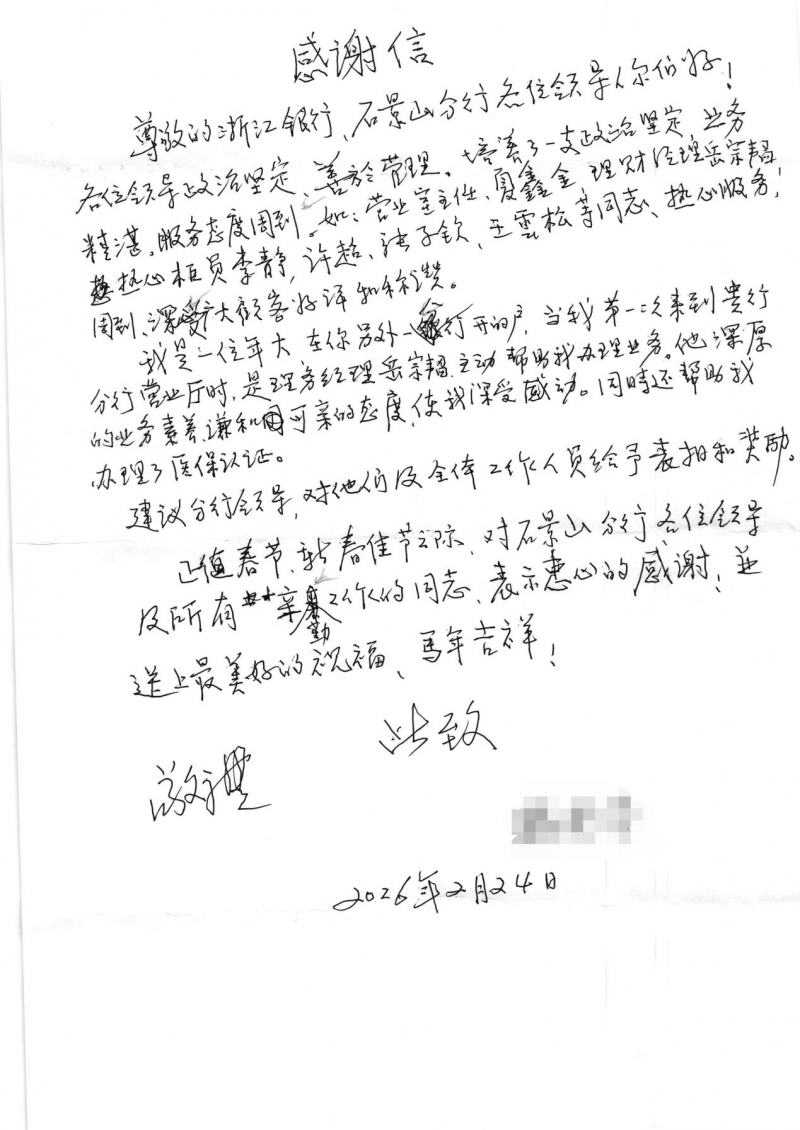 感谢信
尊敬的浙江银行、石景山分行各位领导你们好！
各位领导政治坚定、善於管理。培养了一支政治坚定 业务
精湛。服务态度周到。如：营业室主任、夏鑫金，理财经理岳宗韬
热心柜员李静，许超、张子钦、王雲松等同志、热心服务！
周到、深受广大顾客好评和称讚。
我是一位年大 在你另外一分行开的户，当我第一次来到贵行
分行营业厅时，是理务经理岳宗韬 主动帮助我办理业务。他深厚
的业务素养谦和可亲的态度，使我深受感动。同時还帮助我
办理了医保认证。
建议分行领导，对他们及全体工作人员给予表扬和奖励。
正值春节、新春佳节之际，对石景山分行各位领导
及所有辛勤工作的同志、表示衷心的感谢！並
送上最美好的祝福、马年吉祥！
此致
敬礼
2026年2月24日